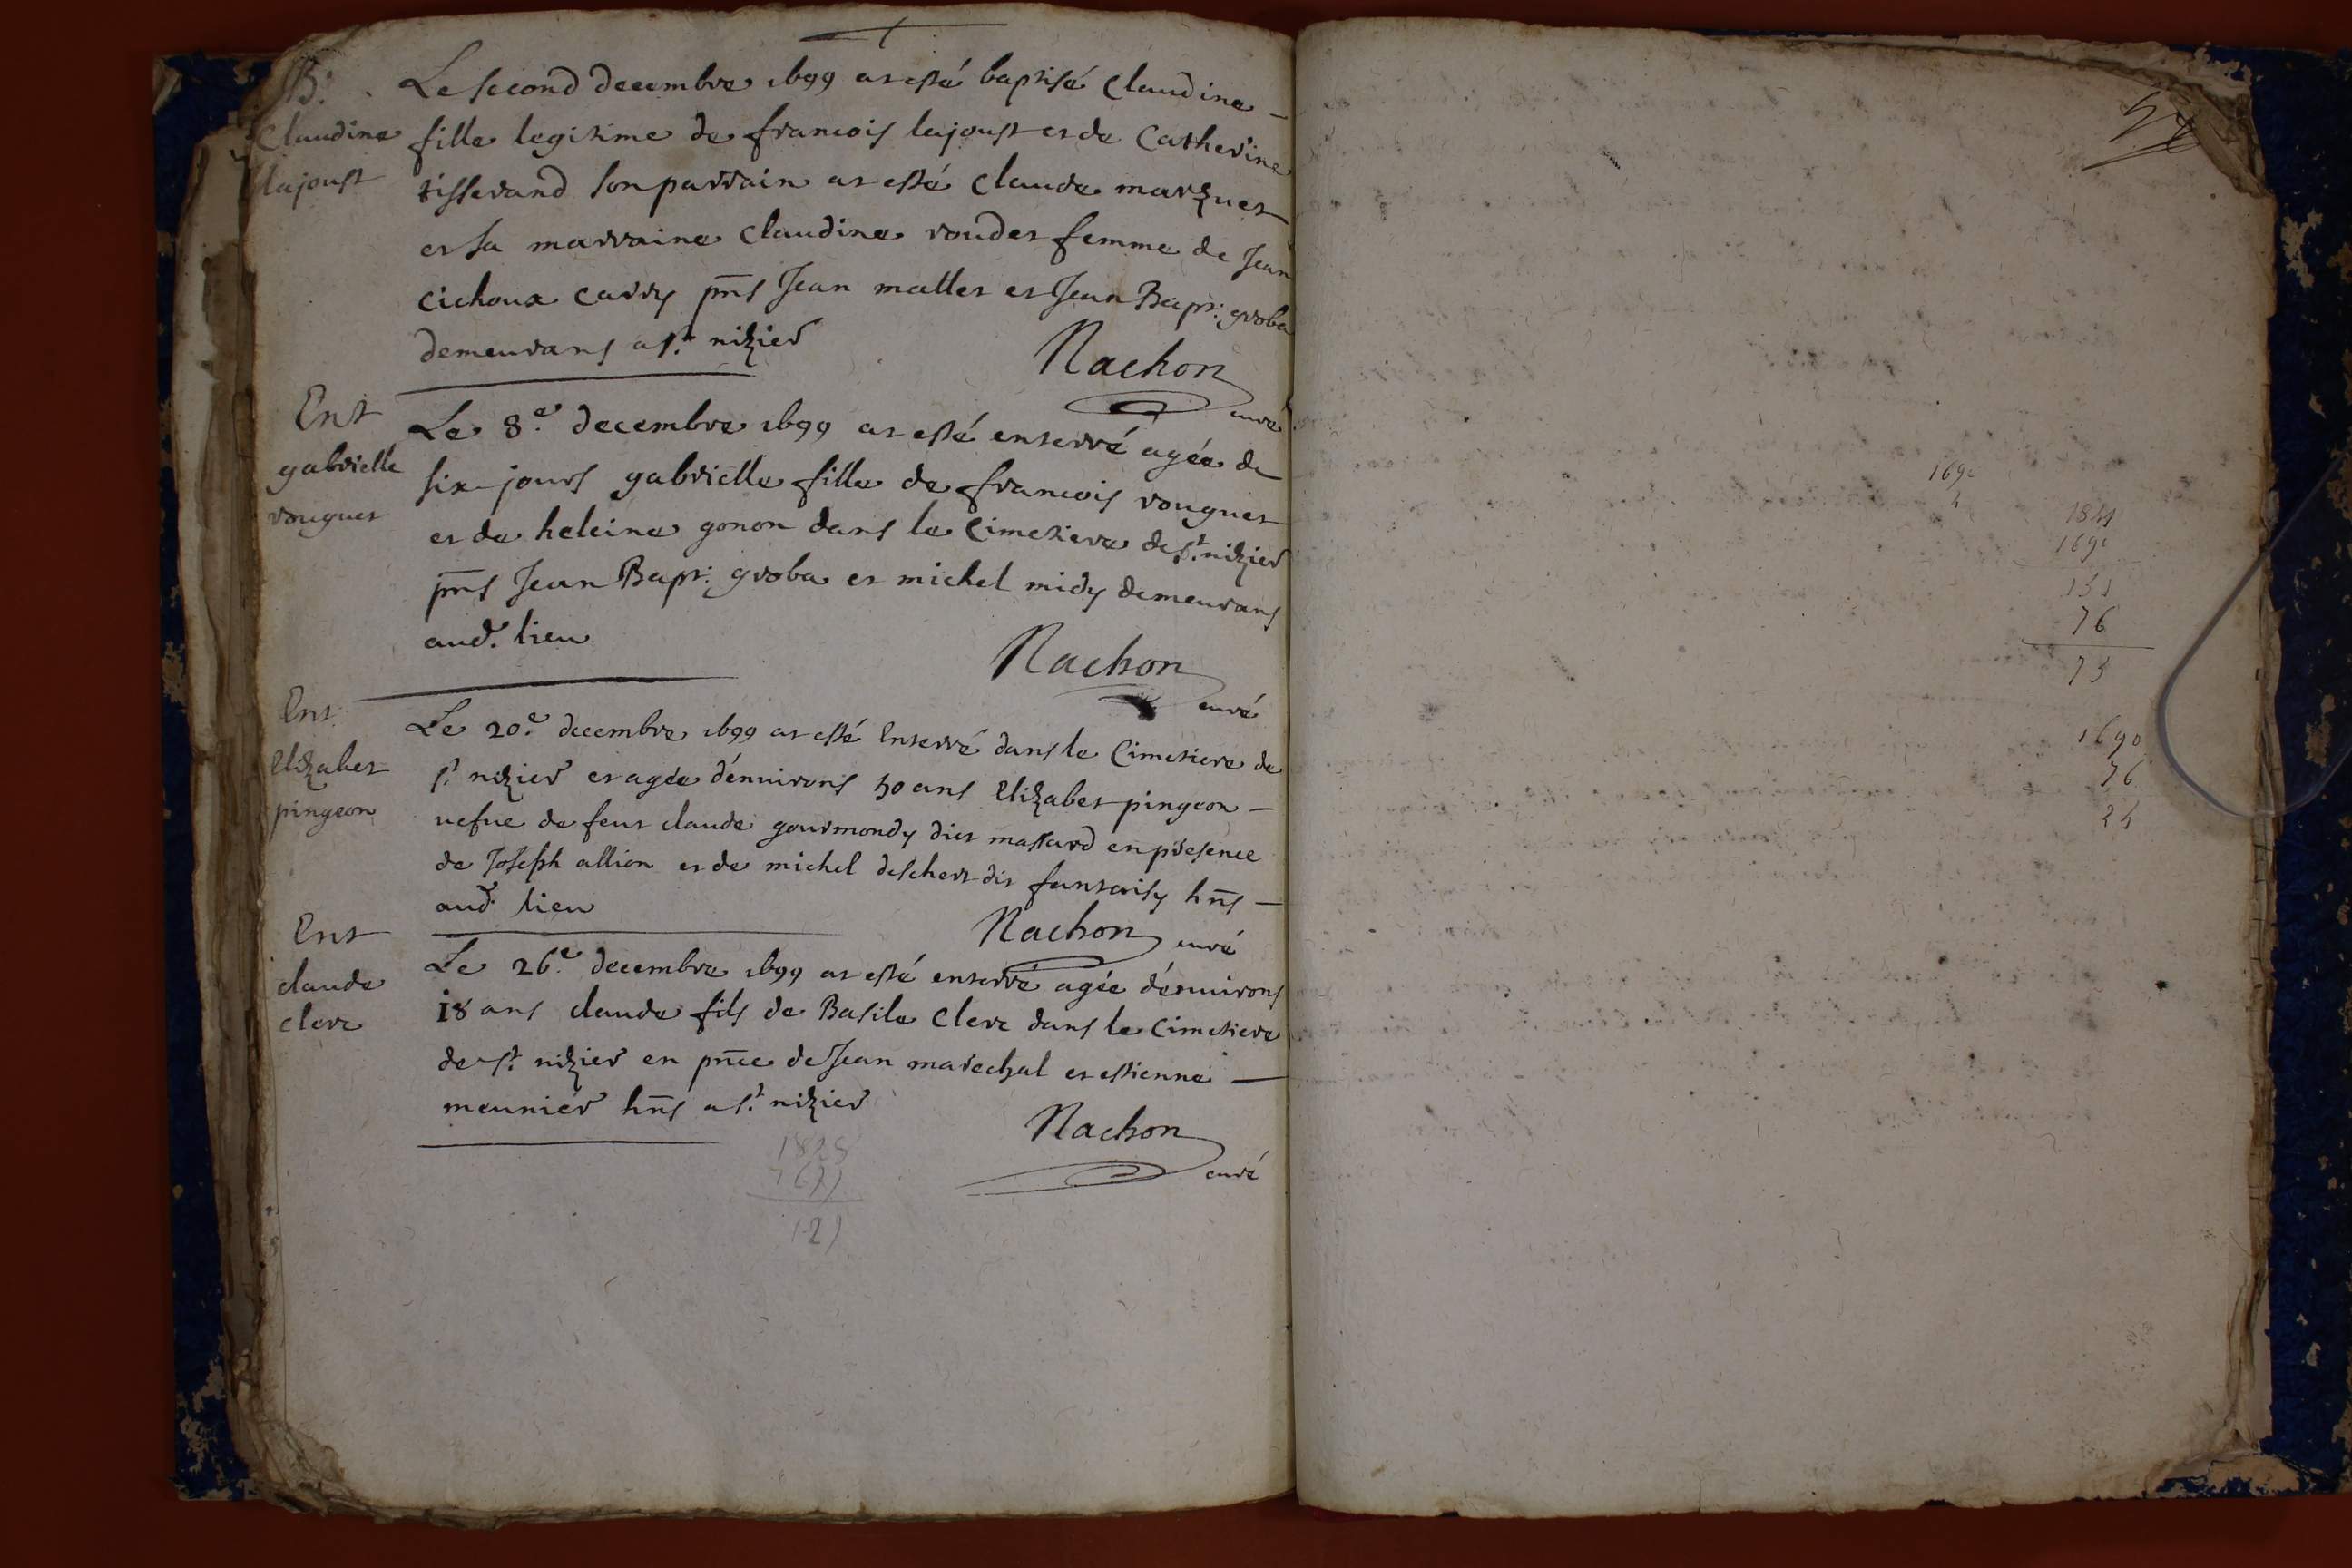 B:
Claudine
lajoust
Le second decembre 1699 at esté baptisé Claudine
fille legitime de francois lajoust et de Catherine
tisserand son parrain at esté Claude marquet
et sa marraine Claudine roudet femme de Jean
cichoux carry pn̄s Jean mallet et Jean Bapt: groba
demeurans a st. nizier
Nachon
curé
Ent
gabrielle
rouguet
Le 8.e decembre 1699 at esté enterré agée de
six jours gabrielle fille de francois rouguet
et de heleine gonon dans le Cimetiere de st. nizier
pn̄s Jean Bapt: groba et michel midy demeurans
aud. lieu
Nachon
curé
Ent
Elizabet
pingeon
Le 20.e decembre 1699 at esté Enterré dans le Cimetiere de
st. nizier et agée d'ennuirons 50 ans Elizabet pingeon
uefue de feut claude gourmondy diet massard en présence
de Joseph allion et de michel deschert dit fantaisy hn̄s
aud. lieu
Nachon curé
Ent
claude
clerc
Le 26.e decembre 1699 at esté enterré agée d'ennuirons
18 ans claude fils de Basile Clerc dans le Cimetiere
de st. nizier en pn̄ce de Jean marechal et estienne
meunier hn̄s a st. nizier
Nachon
curé
121
1690
1690
151
76
75
1690
76
24